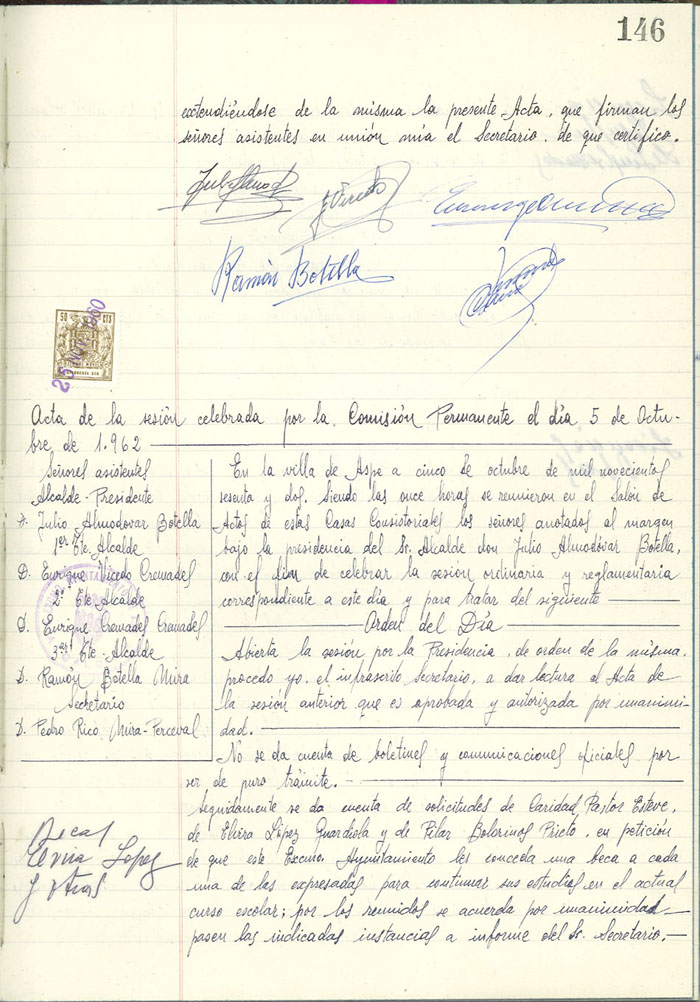 146
extendiéndose de la misma la presente Acta, que firman los
señores asistentes en unión mía el Secretario. de que certifico.
Ramón Botella
50 CTS
25 NOV 1960
Acta de la sesión celebrada por la Comisión Permanente el día 5 de Octu-
bre de 1.962
Señores asistentes
Alcalde-Presidente
D. Julio Almodovar Botella
1er Tte. Alcalde
D. Enrique Vicedo Cremades
2º Tte Alcalde
D. Enrique Cremades Cremades
3er Tte-Alcalde
D. Ramón Botella Mira
Secretario
D. Pedro Rico Mira-Perceval
En la villa de Aspe a cinco de octubre de mil novecientos
sesenta y dos. Siendo las once horas se reunieron en el Salón de
Actos de estas Casas Consistoriales los señores anotados al margen
bajo la presidencia del Sr. Alcalde don Julio Almodóvar Botella,
con el fin de celebrar la sesión ordinaria y reglamentaria
correspondiente a este día y para tratar del siguiente
Orden del Día
Abierta la sesión por la Presidencia, de orden de la misma,
procedo yo, el infrascrito Secretario, a dar lectura al Acta de
la sesión anterior que es aprobada y autorizada por unanimi-
dad.
No se da cuenta de boletines y comunicaciones oficiales por
ser de puro trámite.
Seguidamente se da cuenta de solicitudes de Caridad Pastor Esteve,
de Elvira López Guardiola y de Pilar Bolorinos Prieto, en petición
de que este Excmo. Ayuntamiento les conceda una beca a cada
una de las expresadas para continuar sus estudios en el actual
curso escolar; por los reunidos se acuerda por unanimidad
pasen las indicadas instancias a informe del Sr. Secretario.
Becas
Elvira Lopez
y otras